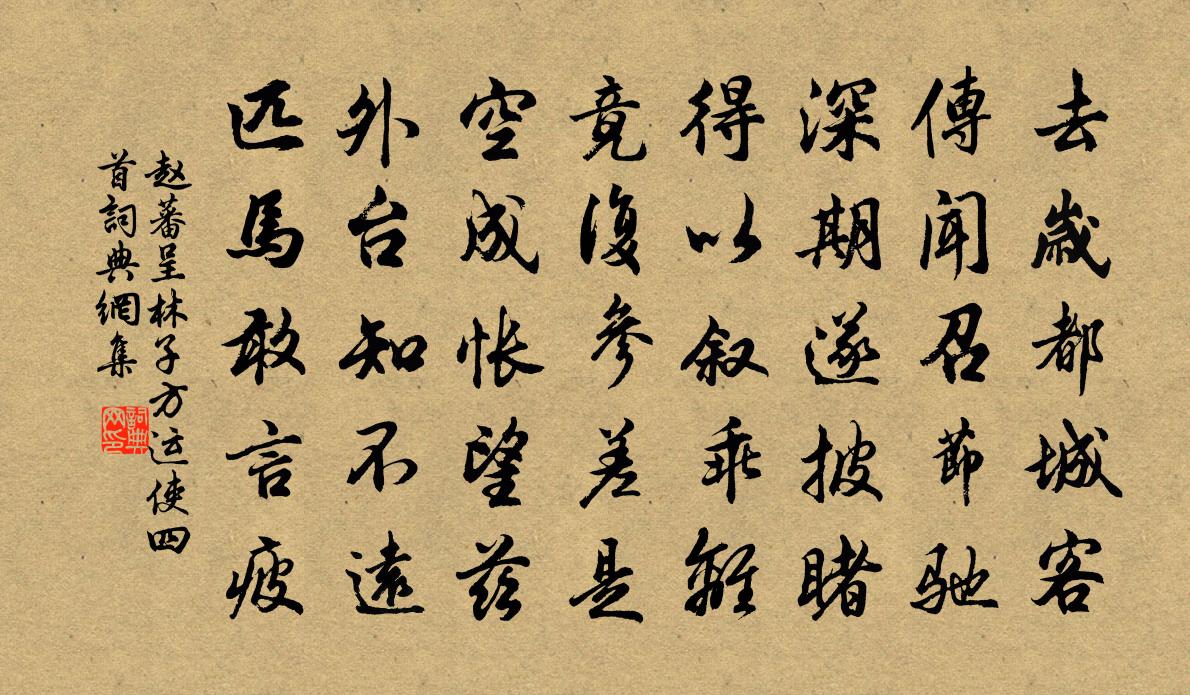 去歲都城客
傳聞召節馳
深期遂披睹
得以叙乖離
竟復參差是
空成悵望兹
外台知不遠
匹馬敢言疲
赵蕃呈林子方运使四
首詞典網集
詞典
网印